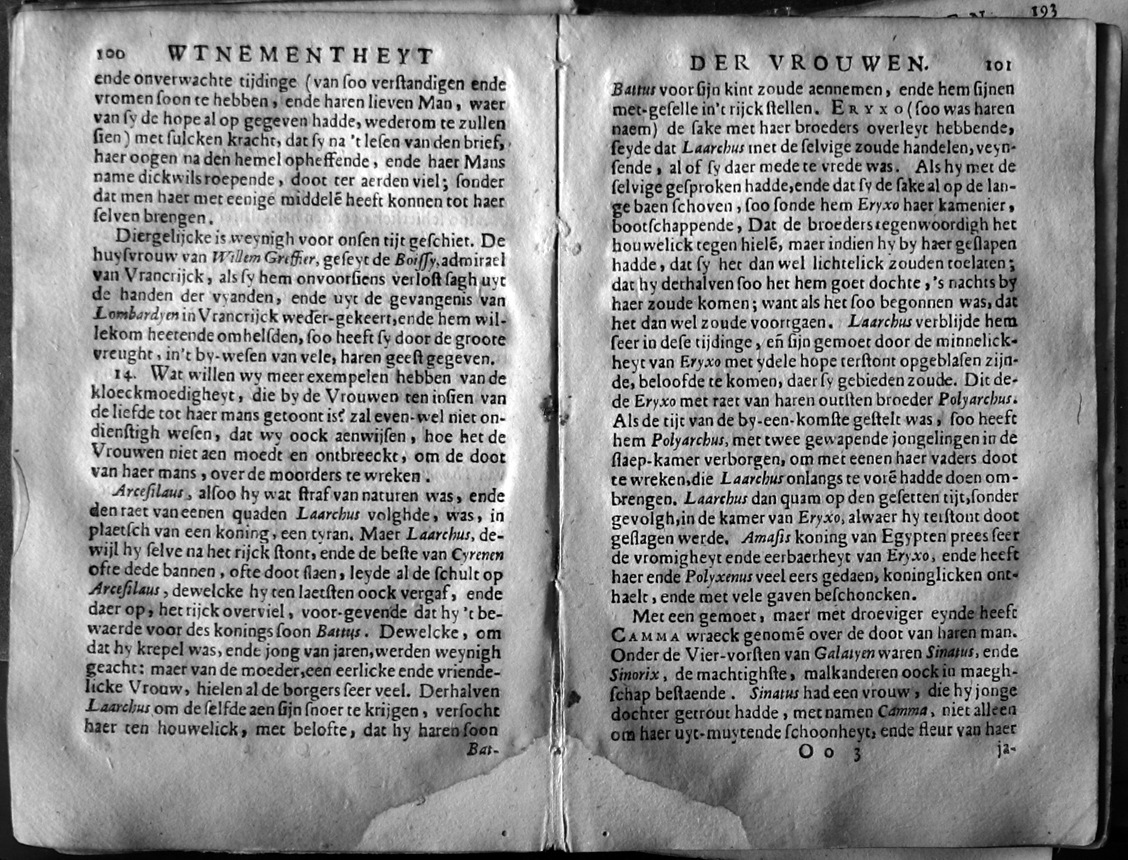 193
100 WTNEMENTHEYT
ende onverwachte tijdinge (van soo verstandigen ende
vromen soon te hebben, ende haren lieven Man, waer
van sy de hope al op gegeven hadde, wederom te zullen
sien) met sulcken kracht, dat sy na 't lesen van den brief,
haer oogen na den hemel opheffende, ende haer Mans
name dickwils roepende, doot ter aerden viel; sonder
dat men haer met eenige middelē heeft konnen tot haer
selven brengen.
Diergelijcke is weynigh voor onsen tijt geschiet. De
huysvrouw van Willem Greffier, geseyt de Boissy, admirael
van Vrancrijck, als sy hem onvoorsiens verlost sagh uyt
de handen der vyanden, ende uyt de gevangenis van
Lombardyen in Vrancrijck weder-gekeert, ende hem wil-
lekom heetende omhelsden, soo heeft sy door de groote
vreught, in't by-wesen van vele, haren geest gegeven.
14. Wat willen wy meer exempelen hebben van de
kloeckmoedigheyt, die by de Vrouwen ten insien van
de liefde tot haer mans getoont is? zal even-wel niet on-
dienstigh wesen, dat wy oock aenwijsen, hoe het de
Vrouwen niet aen moedt en ontbreeckt, om de doot
van haer mans, over de moorders te wreken.
Arcesilaus, alsoo hy wat straf van naturen was, ende
den raet van eenen quaden Laarchus volghde, was, in
plaetsch van een koning, een tyran. Maer Laarchus, de-
wijl hy selve na het rijck stont, ende de beste van Cyrenen
ofte dede bannen, ofte doot slaen, leyde al de schult op
Arcesilaus, dewelcke hy ten laetsten oock vergaf, ende
daer op, het rijck overviel, voor-gevende dat hy 't be-
waerde voor des konings soon Battus. Dewelcke, om
dat hy krepel was, ende jong van jaren, werden weynigh
geacht: maer van de moeder, een eerlicke ende vriende-
licke Vrouw, hielen al de borgers seer veel. Derhalven
Laarchus om de selfde aen sijn snoer te krijgen, versocht
haer ten houwelick, met belofte, dat hy haren soon
Bat-
DER VROUWEN. 101
Battus voor sijn kint zoude aennemen, ende hem sijnen
met-geselle in't rijck stellen. ERYXO (soo was haren
naem) de sake met haer broeders overleyt hebbende,
seyde dat Laarchus met de selvige zoude handelen, veyn-
sende, al of sy daer mede te vrede was. Als hy met de
selvige gesproken hadde, ende dat sy de sake al op de lan-
ge baen schoven, soo sonde hem Eryxo haer kamenier,
bootschappende, Dat de broeders tegenwoordigh het
houwelick tegen hielē, maer indien hy by haer geslapen
hadde, dat sy het dan wel lichtelick zouden toelaten;
dat hy derhalven soo het hem goet dochte, 's nachts by
haer zoude komen; want als het soo begonnen was, dat
het dan wel zoude voortgaen. Laarchus verblijde hem
seer in dese tijdinge, eñ sijn gemoet door de minnelick-
heyt van Eryxo met ydele hope terstont opgeblasen zijn-
de, beloofde te komen, daer sy gebieden zoude. Dit de-
de Eryxo met raet van haren outsten broeder Polyarchus.
Als de tijt van de by-een-komste gestelt was, soo heeft
hem Polyarchus, met twee gewapende jongelingen in de
slaep-kamer verborgen, om met eenen haer vaders doot
te wreken, die Laarchus onlangs te vorē hadde doen om-
brengen. Laarchus dan quam op den gesetten tijt, sonder
gevolgh, in de kamer van Eryxo, alwaer hy terstont doot
geslagen werde. Amasis koning van Egypten prees seer
de vromigheyt ende eerbaerheyt van Eryxo, ende heeft
haer ende Polyxenus veel eers gedaen, koninglicken ont-
haelt, ende met vele gaven beschoncken.
Met een gemoet, maer met droeviger eynde heeft
CAMMA wraeck genomē over de doot van haren man.
Onder de Vier-vorsten van Galatyen waren Sinatus, ende
Sinorix, de machtighste, malkanderen oock in maegh-
schap bestaende. Sinatus had een vrouw, die hy jonge
dochter getrout hadde, met namen Camma, niet alleen
om haer uyt-muytende schoonheyt, ende fleur van haer
Oo 3 ja-